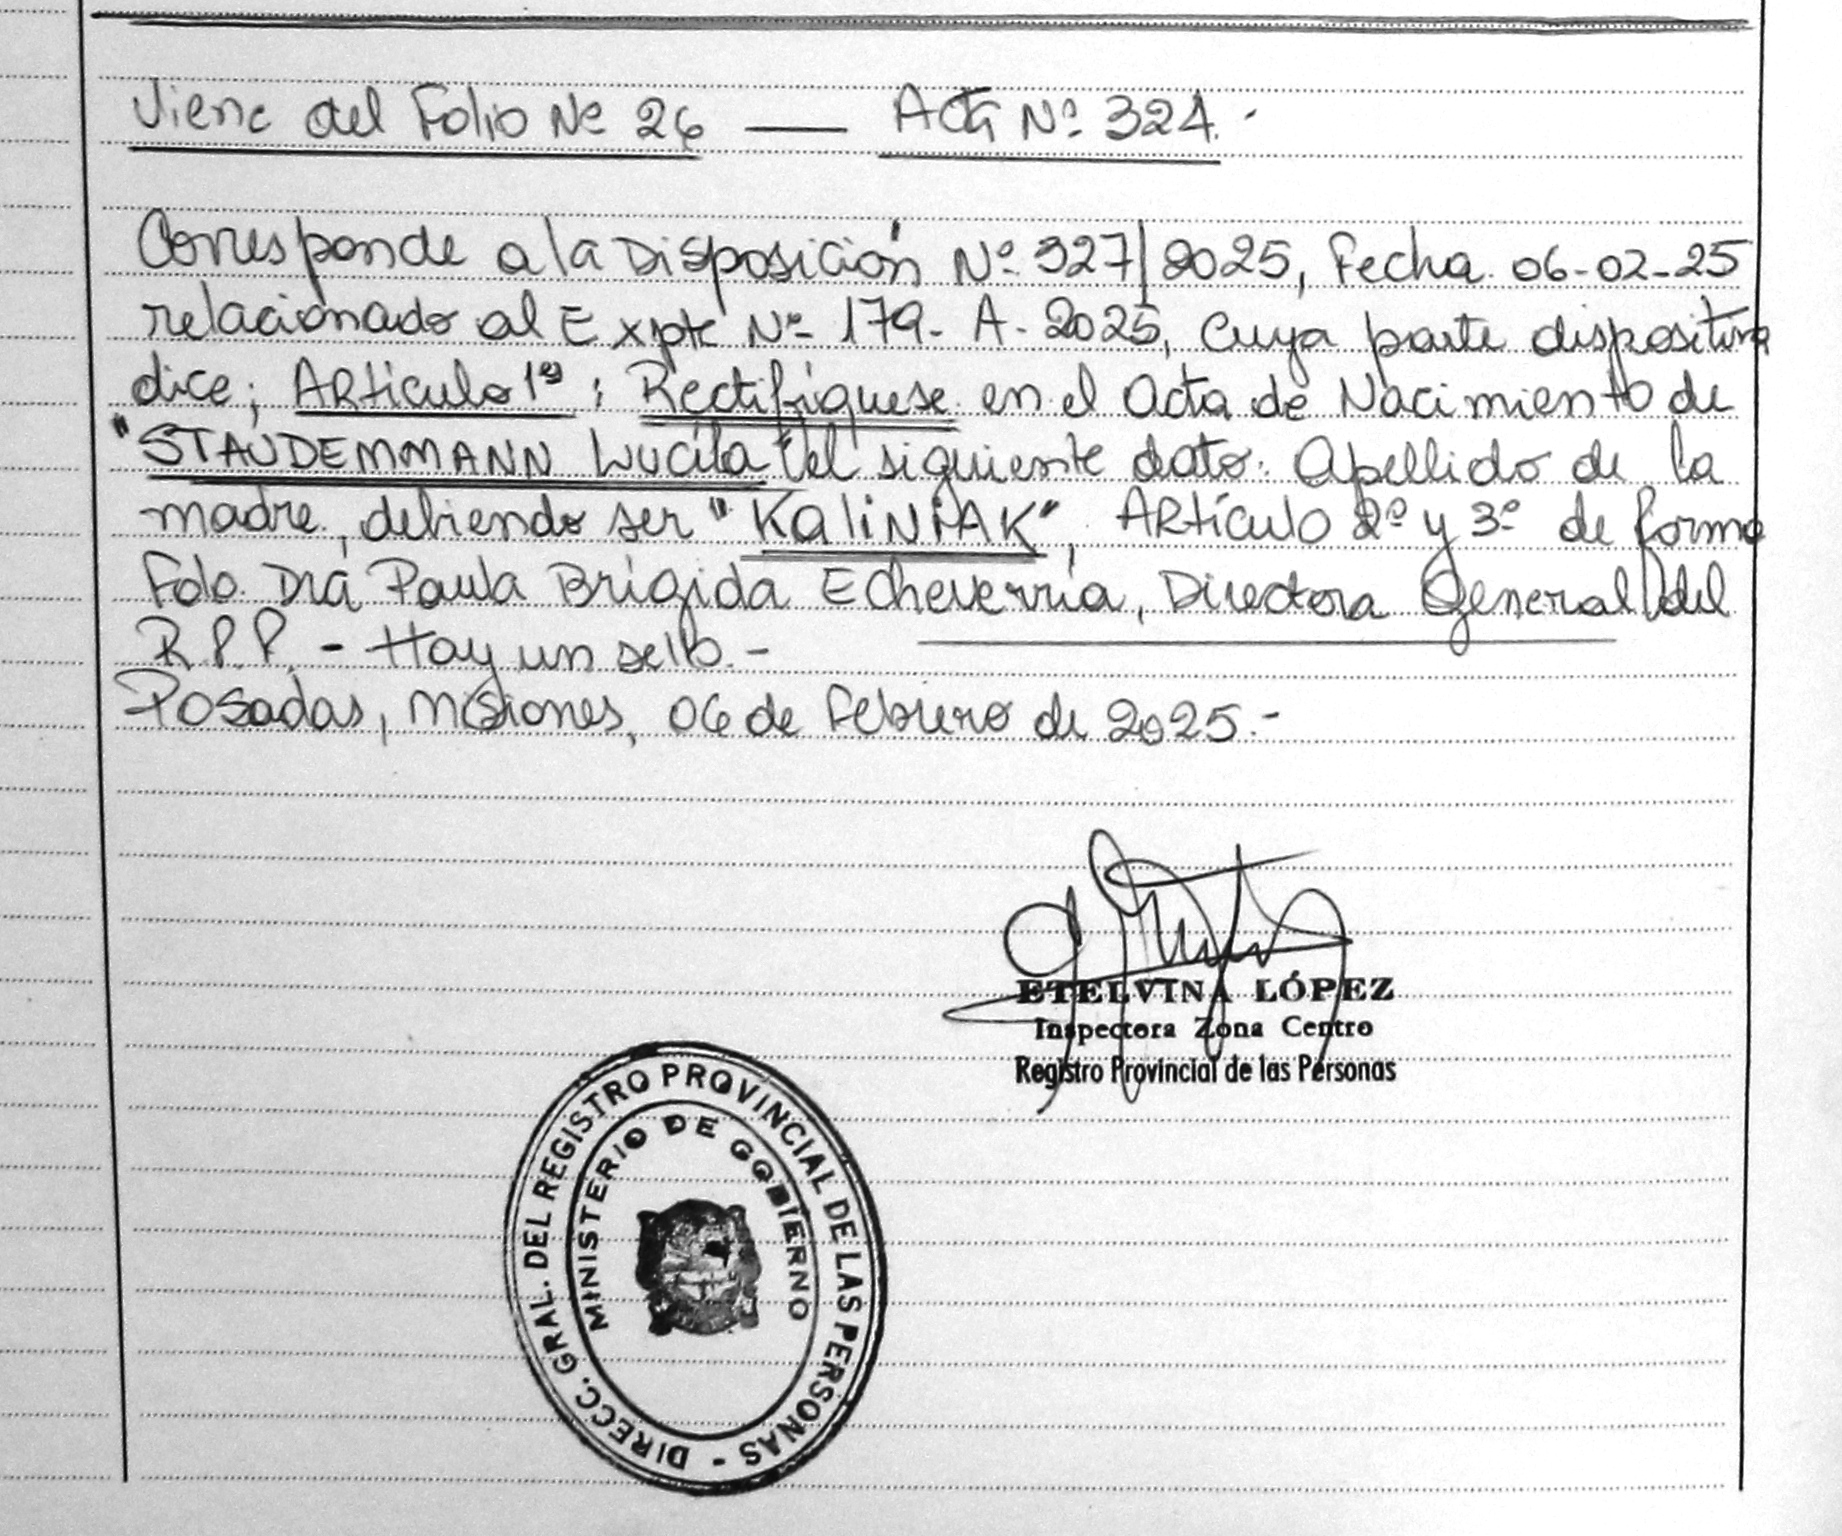 Viene del Folio Nº 26 — Acta Nº 324.-
Corresponde a la Disposición Nº 327/2025, Fecha 06-02-25
relacionado al Expte Nº 179-A-2025, cuya parte dispositiva
dice; Artículo 1º: Rectifíquese en el Acta de Nacimiento de
"STAUDEMMANN Lucila" el siguiente dato: Apellido de la
madre, debiendo ser "KaliNiAK", Artículo 2º y 3º de forma
Fdo. Dra Paula Brígida Echeverría, Directora General del
R.P.P. - Hay un sello.-
Posadas, Misiones, 06 de Febrero de 2025.-
ETELVINA LÓPEZ
Inspectora Zona Centro
Registro Provincial de las Personas
DIRECC. GRAL. DEL REGISTRO PROVINCIAL DE LAS PERSONAS -
MINISTERIO DE GOBIERNO